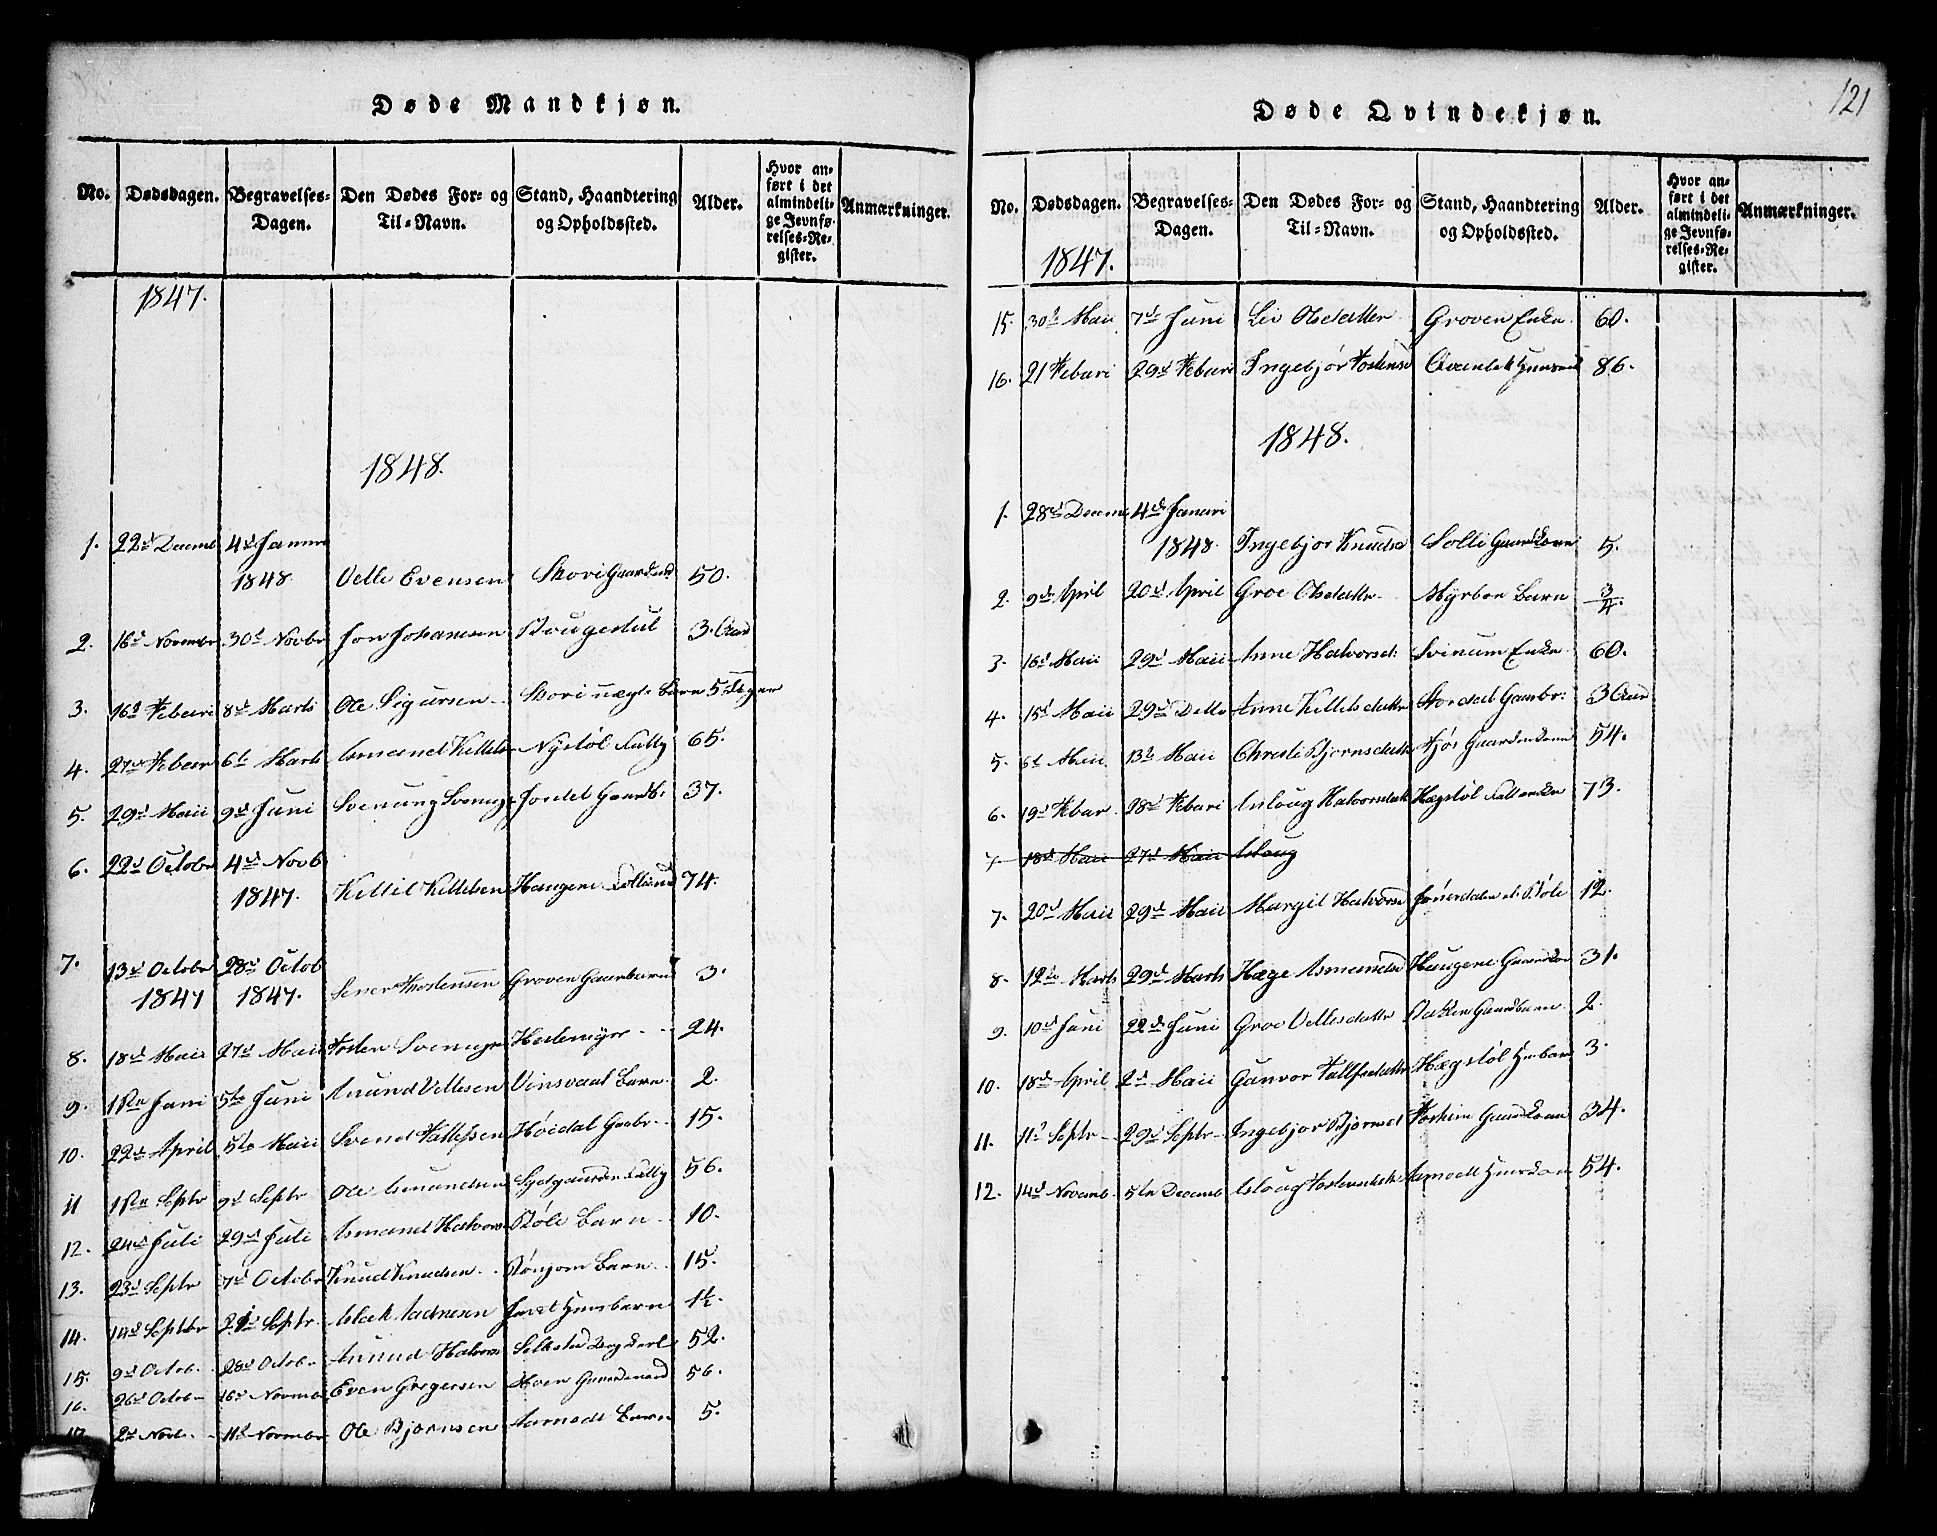 Døde Mandkjøn.
No. Dødsdagen. Begravelses-Dagen. Den Dødes For- og Til-Navn. Stand, Haandtering og Opholdssted. Alder. Hvor anført i det almindelige Jevnførelses-Register. Anmærkninger.
1847.
1848.
1. 22d Decmb 4d Januar
1848. Velle Evensen Skori Gaardmd 50.
2. 16d Novembr 30d Novbr Jon Johansen Rougestul 3. Aar
3. 16d Febuari 8d Marts Ole Sigursen Skori uægte Barn 5 Dager
4. 27d Febuar 6te Marts Asmund Kittels Nystøl Fattg 65.
5. 29d Maii 9d Juni Svenung Svenugs Jordet Gaardb: 37.
6. 22d Octobr 4d Novb
1847. Kettil Kittelsen Haugene 74.
7. 13d Octobr 28d Octob
1847 1847. Sener Thostensen Groven Gaarbarn 3.
8. 18d Maii 27d Maii Tosten Svenugn Hestemyr 24.
9. 1ste Juni 5te Juni Anund Vellesen Vinsvaal Barn 2.
10. 22d April 5te Maii Svend Tallefsen Høidal Gaabr 15.
11 1ste Septr 9d Septr Ole Asmundsen Sydgaarden Fattg 56.
12. 24d Juli 29d Juli Asmund Halvors Bøle Barn 10.
13. 23d Septr 7d Octobr Knud Knudsen Rønjom Barn 15.
14. 14d Septbr 21d Septr Aslak Aadnesen Husbarn 1½.
15. 9d Octob. 28d Octobr Anund Halvors 52.
16. 26d Octobr 16d Novmbr Even Gregersen Hoen Gaardmand 56.
17 2d Novb. 11d Novembr Ole Bjørnsen Aamodt Barn 5.
121
Døde Qvindekjøn.
No. Dødsdagen. Begravelses-Dagen. Den Dødes For- og Til-Navn. Stand, Haandtering og Opholdssted. Alder. Hvor anført i det almindelige Jevnførelses-Register. Anmærkninger.
1847.
15. 30te Maii 7de Juni Liv Olsdatter Groven Enke 60.
16. 21 Febuari 29d Febuari Ingebjør Tostensd 86.
1848.
1. 28d Decmb 4de Januari
1848. Ingebjør Knudsd Solli Gaardkone 5.
2. 9de April 20d April Groe Olsdattr Myrboe Barn 3/4.
3. 16d Maii 29d Maii Anne Halvorsd: Svinum Enke 60.
4. 15d Maii 29d Detto Anne Kittelsdattr Gaarbr: 3 Aar
5. 6te Maii 13de Maii Christi Bjørnsdatt Gaardmkone 54.
6. 19d Febuar 28d Febuari Aslaug Halvorsdatt Hægstøl 73.
7 18d Maii 27d Maii Aslaug
7. 20d Maii 29d Maii Margit Halvorsd Bøle 12.
8. 12te Marts 29d Marts Hæge Asmundsd Haugene Gaardkon 31.
9. 10d Juni 22d Juni Groe Vellesdattr Bakken Gaardbarn 2.
10. 18d April 2d Maii Gunvor Tallefsdattr Hægstøl Husbarn 3.
11. 11d Septr 29d Septr Ingebjør Bjørnsd Gaardkone 34.
12. 14d Novemb 5te Decemb Aslaug Tostensdatt Aamodt Huuskon 54.